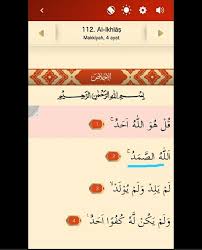 112. Al-Ikhlâṣ
Makkiyah, 4 ayat
الإخلاص
بِسْمِ اللّٰهِ الرَّحْمٰنِ الرَّحِيْمِ
قُلْ هُوَ اللّٰهُ اَحَدٌۚ 1
اَللّٰهُ الصَّمَدُۚ 2
لَمْ يَلِدْ وَلَمْ يُوْلَدْۙ 3
وَلَمْ يَكُنْ لَّهٗ كُفُوًا اَحَدٌ 4